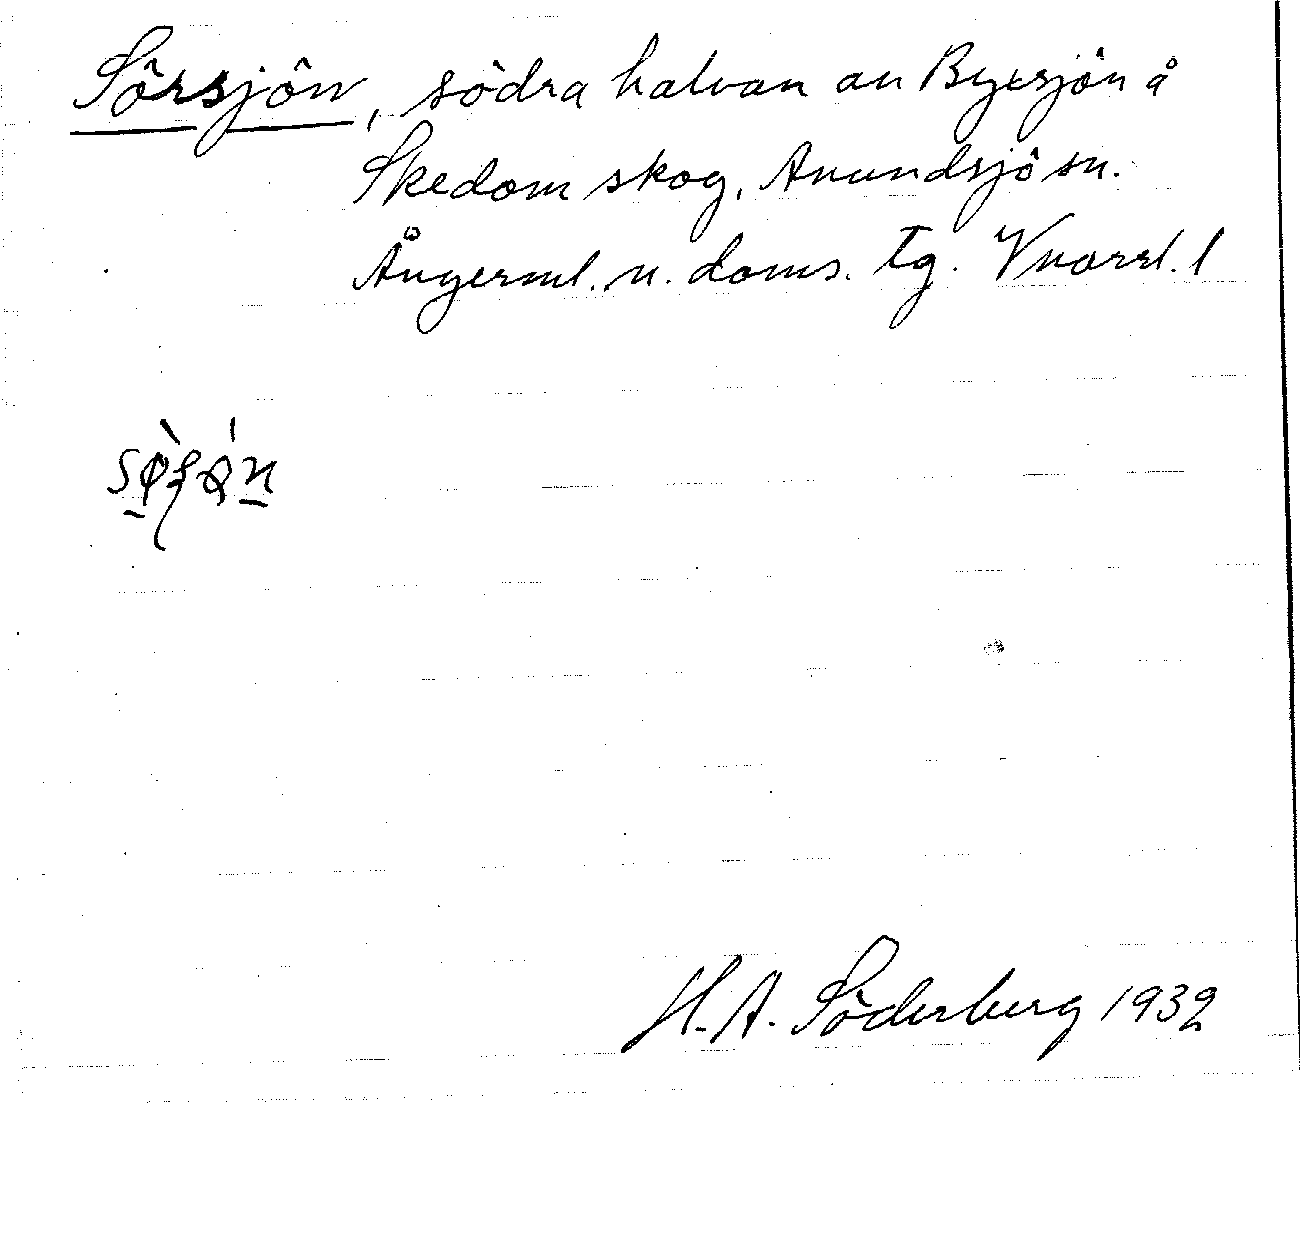 Sörsjön, södra halvan av Byxsjön å
Skedom skog, Anundsjö sn.
Ångerml. n. doms. tg. Vnorrl. l
H. A. Söderberg 1932